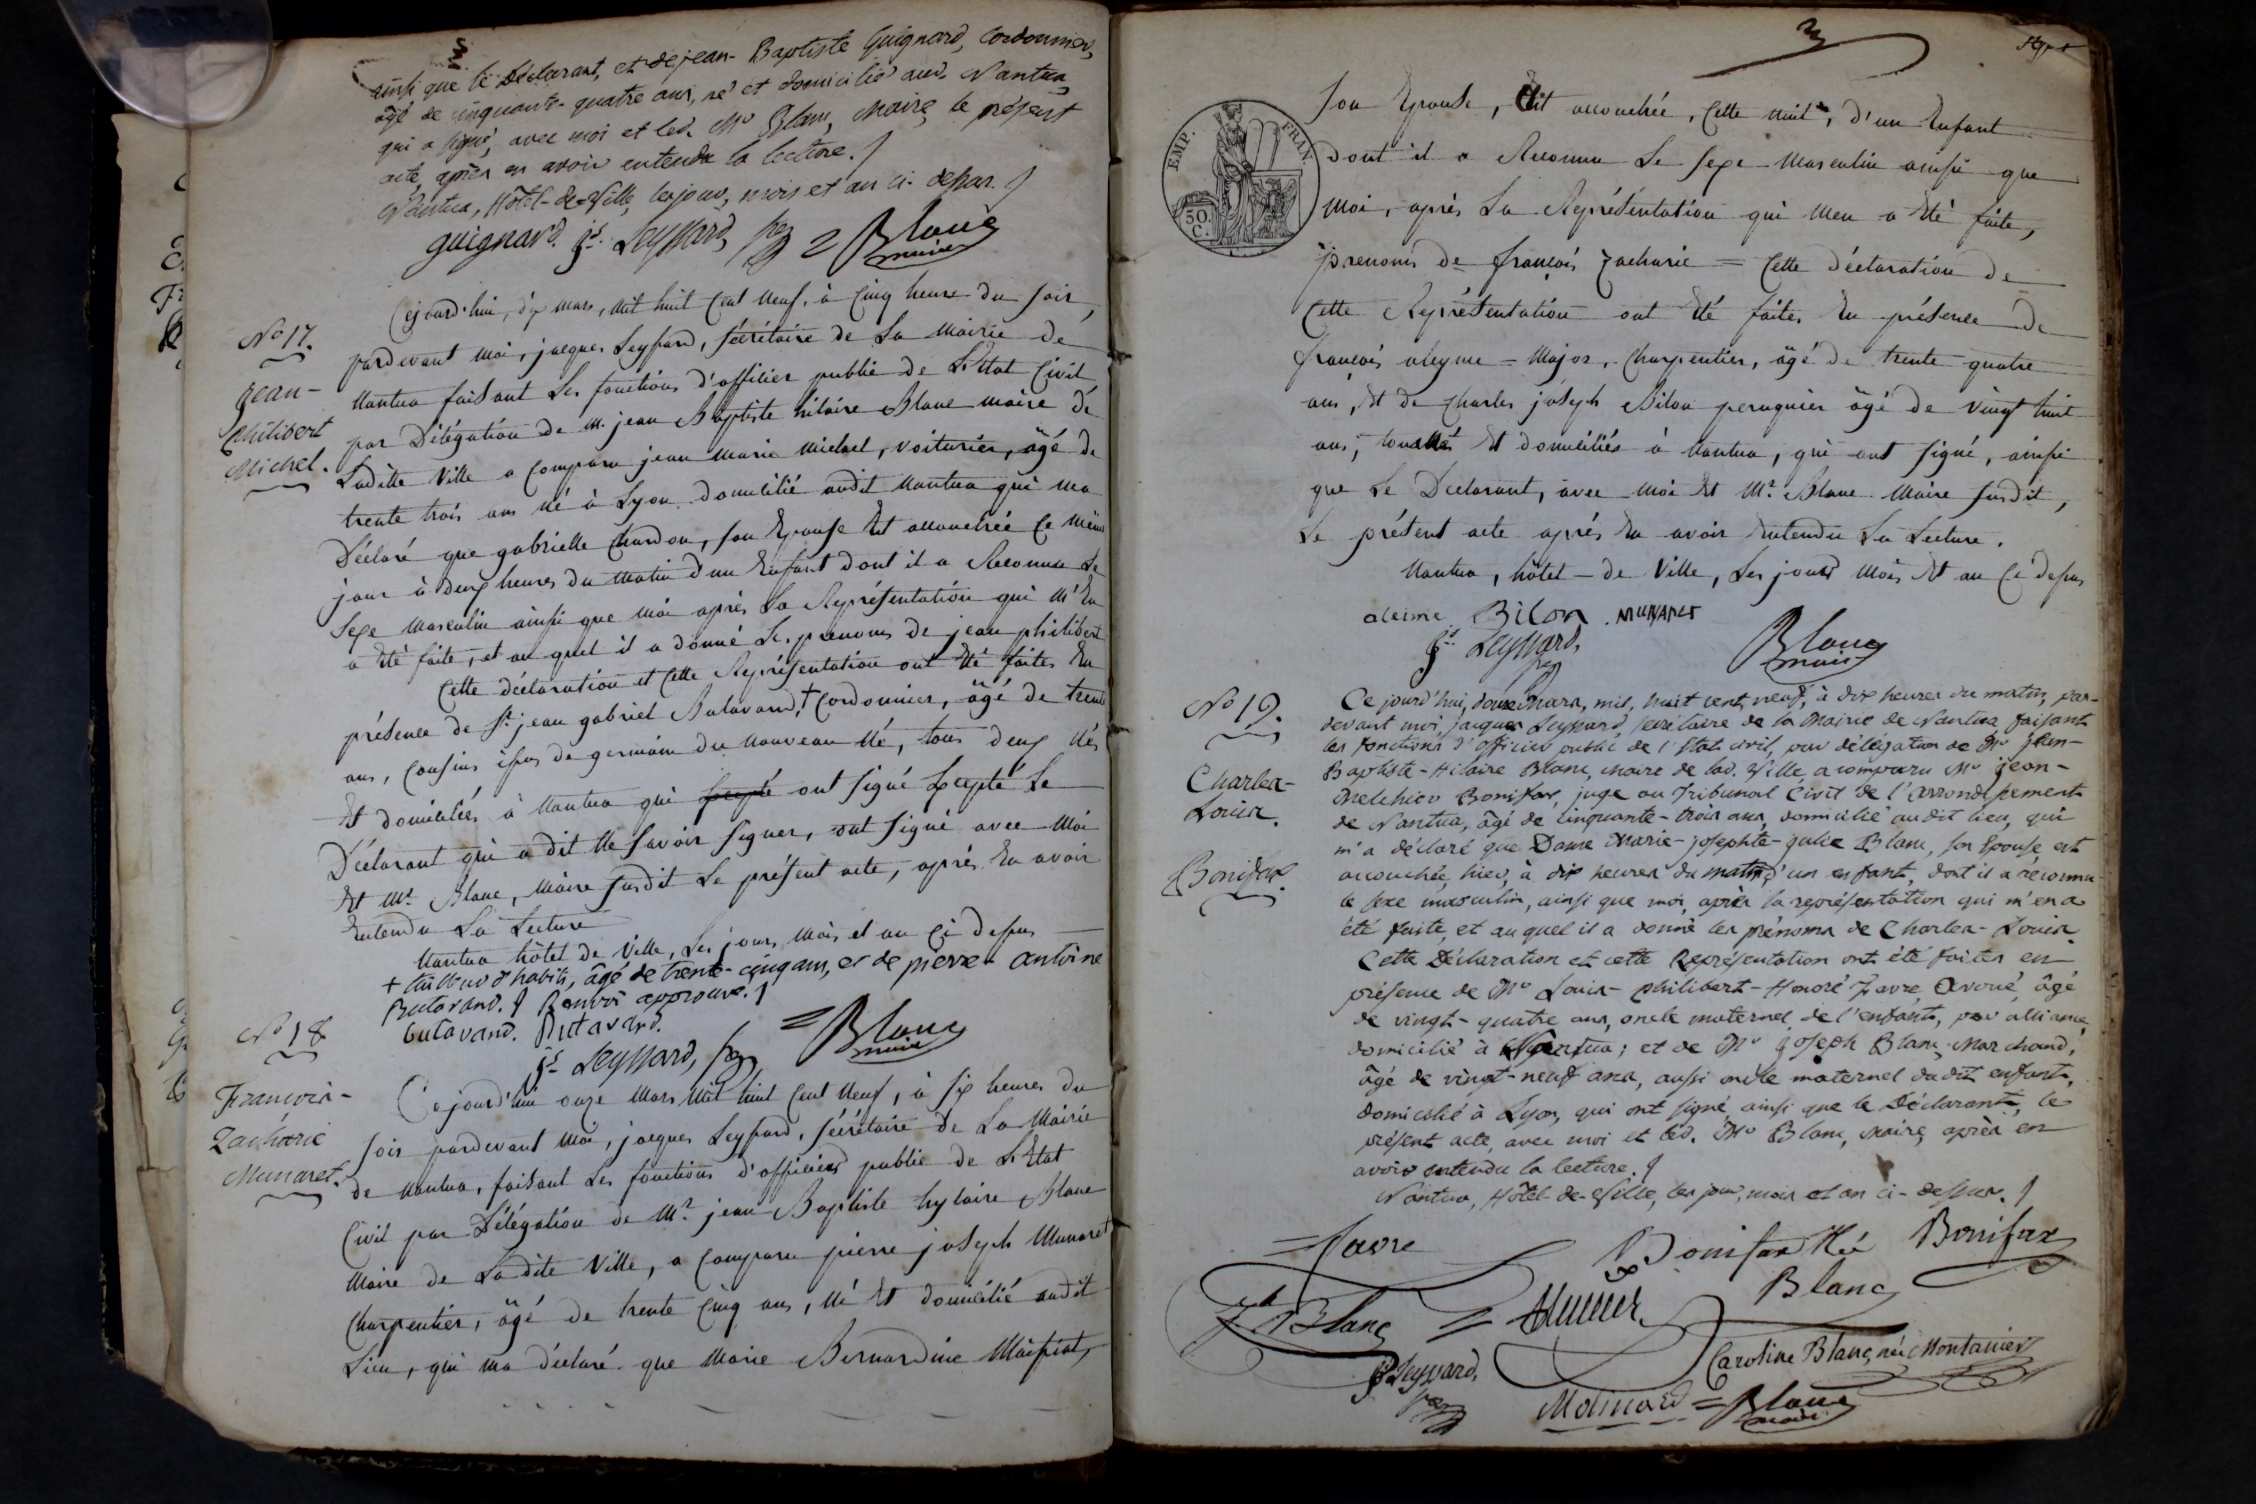 ainsi que le Déclarant, et de jean-Baptiste Guignard, Cordonnier,
âgé de cinquante-quatre ans, né et domicilié aud. Nantua,
qui a signé, avec moi et led. Mr Blanc, Maire, le présent
acte, après en avoir entendu la lecture.
Nantua, Hôtel-de-Ville, les jour, mois et an ci-dessus.
guignard. js. Leyssard, Blanc
maire
No 17.
jean-
philibert
Michel.
Cejourd'hui, dix mars, mil huit Cent Neuf, à Cinq heures du soir,
pardevant moi, jacques Leyssard, sécrétaire de La Mairie de
Nantua faisant Les fonctions d'officier public de L'Etat Civil
par Délégation de M. jean Baptiste hilaire Blanc maire de
Laditte Ville a Comparu jean marie michel, voiturier, âgé de
trente trois ans né à Lyon domicilié audit Nantua qui ma
Déclaré que gabrielle Chardon, son Epouse Est accouchée Ce même
jour à deux heures du matin d'un Enfant dont il a Reconnu Le
Sexe Masculin ainsi que moi après La Représentation qui M'En
a Eté faite, et au quel il a donné Les prenoms de jean philibert
Cette déclaration et Cette Représentation ont Eté faites En
présence de Sr. jean gabriel Butavand,+ Cordonnier, âgé de trente
ans, Cousins issus de germain du nouveau Né, tous deux Nés
Et domiciliés à Nantua qui ont signé Excepté Le
Déclarant qui a dit Ne savoir signer, ont signé avec Moi
Et Mr. Blanc, Maire susdit Le présent acte, après En avoir
Entendu La Lecture
Nantua hôtel de Ville, Les jour, Mois et an Ci dessus
+ tailleur d'habits, âgé de trente-cinq ans, et de pierre-antoine
Butavand. Renvoi approuvé.
butavand. Butavand.
js. Leyssard, Blanc
maire
No 18
François-
Zacharie
Munaret.
Cejourd'hui onze Mars Mil huit Cent Neuf, à six heures du
soir pardevant Moi, jacques Leyssard, sécrétaire de La Mairie
de Nantua, faisant Les fonctions d'officier public de L'Etat
Civil par Délégation de Mr. jean Baptiste hylaire Blanc
Maire de Ladite Ville, a Comparu pierre joseph Munaret
Charpentier, âgé de trente Cinq ans, Né Et domicilié audit
Lieu, qui ma déclaré que Marie Bernardine
EMP. FRAN.
50.
C.
son Epouse, Est accouchée, Cette nuit, d'un Enfant
dont il a Reconnu Le sexe Masculin ainsi que
Moi, après La Représentation qui M'en a Eté faite,
prenoms de françois Zacharie = Cette déclaration de
Cette Représentation ont Eté faites En présence de
françois aleyme = Major, Charpentier, âgé de trente quatre
ans, Et de Charles joseph Bilon peruquier âgé de Vingt huit
ans, Et domiciliés à Nantua, qui ont signé, ainsi
que Le Déclarant, avec moi Et Mr. Blanc Maire susdit,
Le présent acte après En avoir Entendu La Lecture.
Nantua, hôtel-de Ville, Les jour Mois Et an Ci dessus
aleime Bilon. MUNARET
js. Leyssard, Blanc
maire
No 19.
Charles-
Louis.
Bonifax.
Ce jourd'hui, douze Mars, mil, huit cent, neuf, à dix heures du matin, par-
devant moi, jacques Leyssard, secrétaire de la Mairie de Nantua faisant
les fonctions d'officier public de l'Etat civil, par délégation de Mr jean-
Baptiste-Hilaire Blanc, Maire de lad. Ville, a comparu Mr jean-
Melchior Bonifax, juge au Tribunal Civil de l'arrondissement
de Nantua, âgé de cinquante-trois ans, domicilié audit lieu, qui
m'a déclaré que Dame Marie-josephte-julie Blanc, son Epouse est
accouchée, hier, à dix heures du matin, d'un enfant, dont il a réconnu
le sexe masculin, ainsi que moi, après la représentation qui m'en a
été faite, et auquel il a donné les prénoms de Charles-Louis.
Cette Déclaration et cette Représentation ont été faites en
présence de Mr Louis-philibert-Honoré Favre Avoué, âgé
de vingt-quatre ans, oncle maternel de l'enfant, par alliance,
domicilié à Nantua; et de Mr joseph Blanc, Marchand,
âgé de vingt-neuf ans, aussi oncle maternel dudit enfant,
domicilié à Lyon, qui ont signé, ainsi que le Déclarant, le
présent acte, avec moi et led. Mr Blanc, Maire, après en
avoir entendu la lecture.
Nantua, Hôtel-de-Ville, les jour, mois et an ci-dessus.
favre Bonifax Née Bonifax
Blanc
Blanc
Caroline Blanc, née Montanier
js Leyssard,
Molinard Blanc
maire